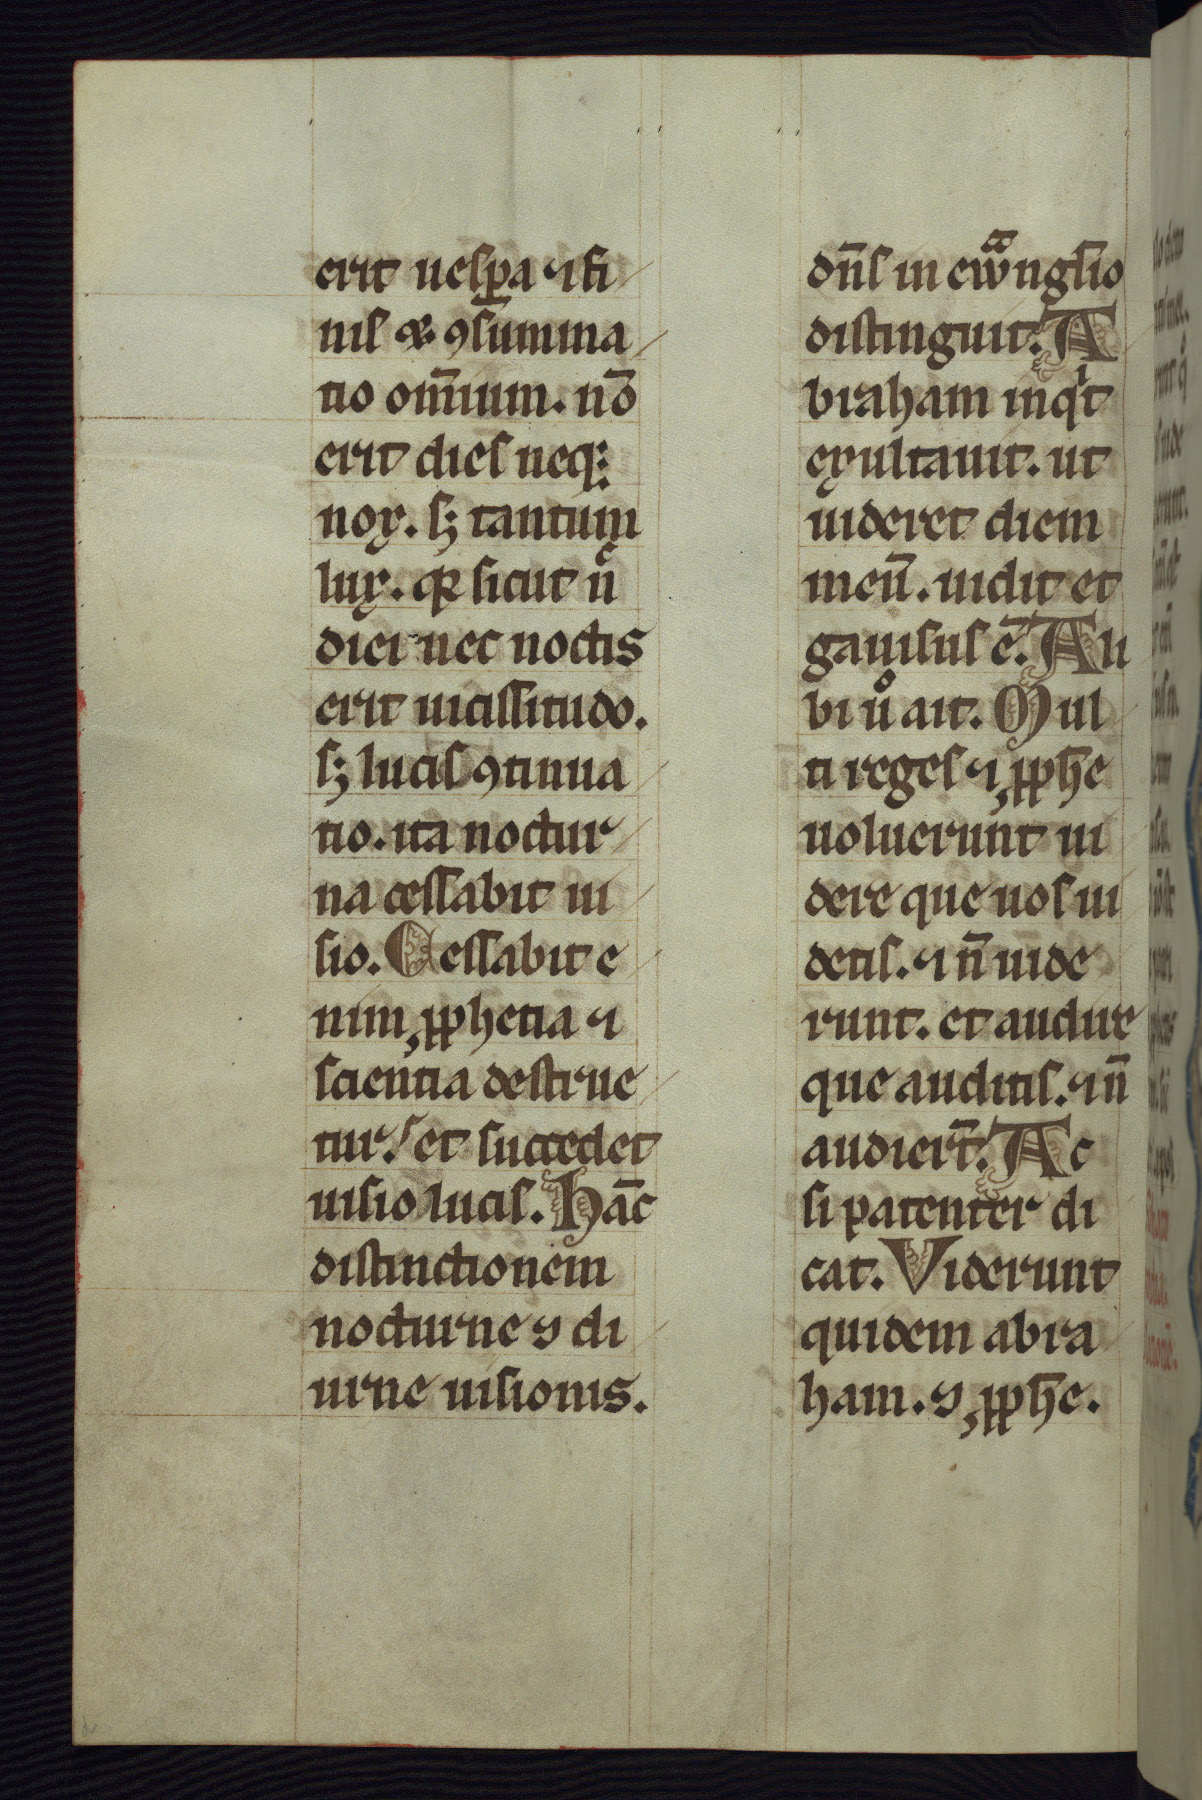 erit uesꝑa ⁊ i fi
nis & ꝯsūmma
tio om̄ium. nō
erit dies neq;
nox. sꝫ tantum
lux. qꝛ sicut ūc
diei nec noctis
erit uicissitudo.
sꝫ lucis ꝯtinua
tio. ita noctur
na cessabit ui
sio. Cessabit e
nim ꝓphetia ⁊
scientia destrue
tur. et succedet
uisio lucis. Hāc
distinctionem
nocturne ⁊ di
urne uisionis.
dn̄s in ewangl̄io
distinguit. A
braham inqͥt
exultauit. ut
uideret diem
meū. uidit et
gauisus ē. Ali
bi uͦ ait. Mul
ti reges ⁊ ꝓph̄e
uoluerunt ui
dere que uos ui
detis. ⁊ n̄ uide
runt. et audire
que auditis. ⁊ n̄
audiert̄. Ac
si patenter di
cat. Viderunt
quidem abra
ham. ⁊ ꝓph̄e.